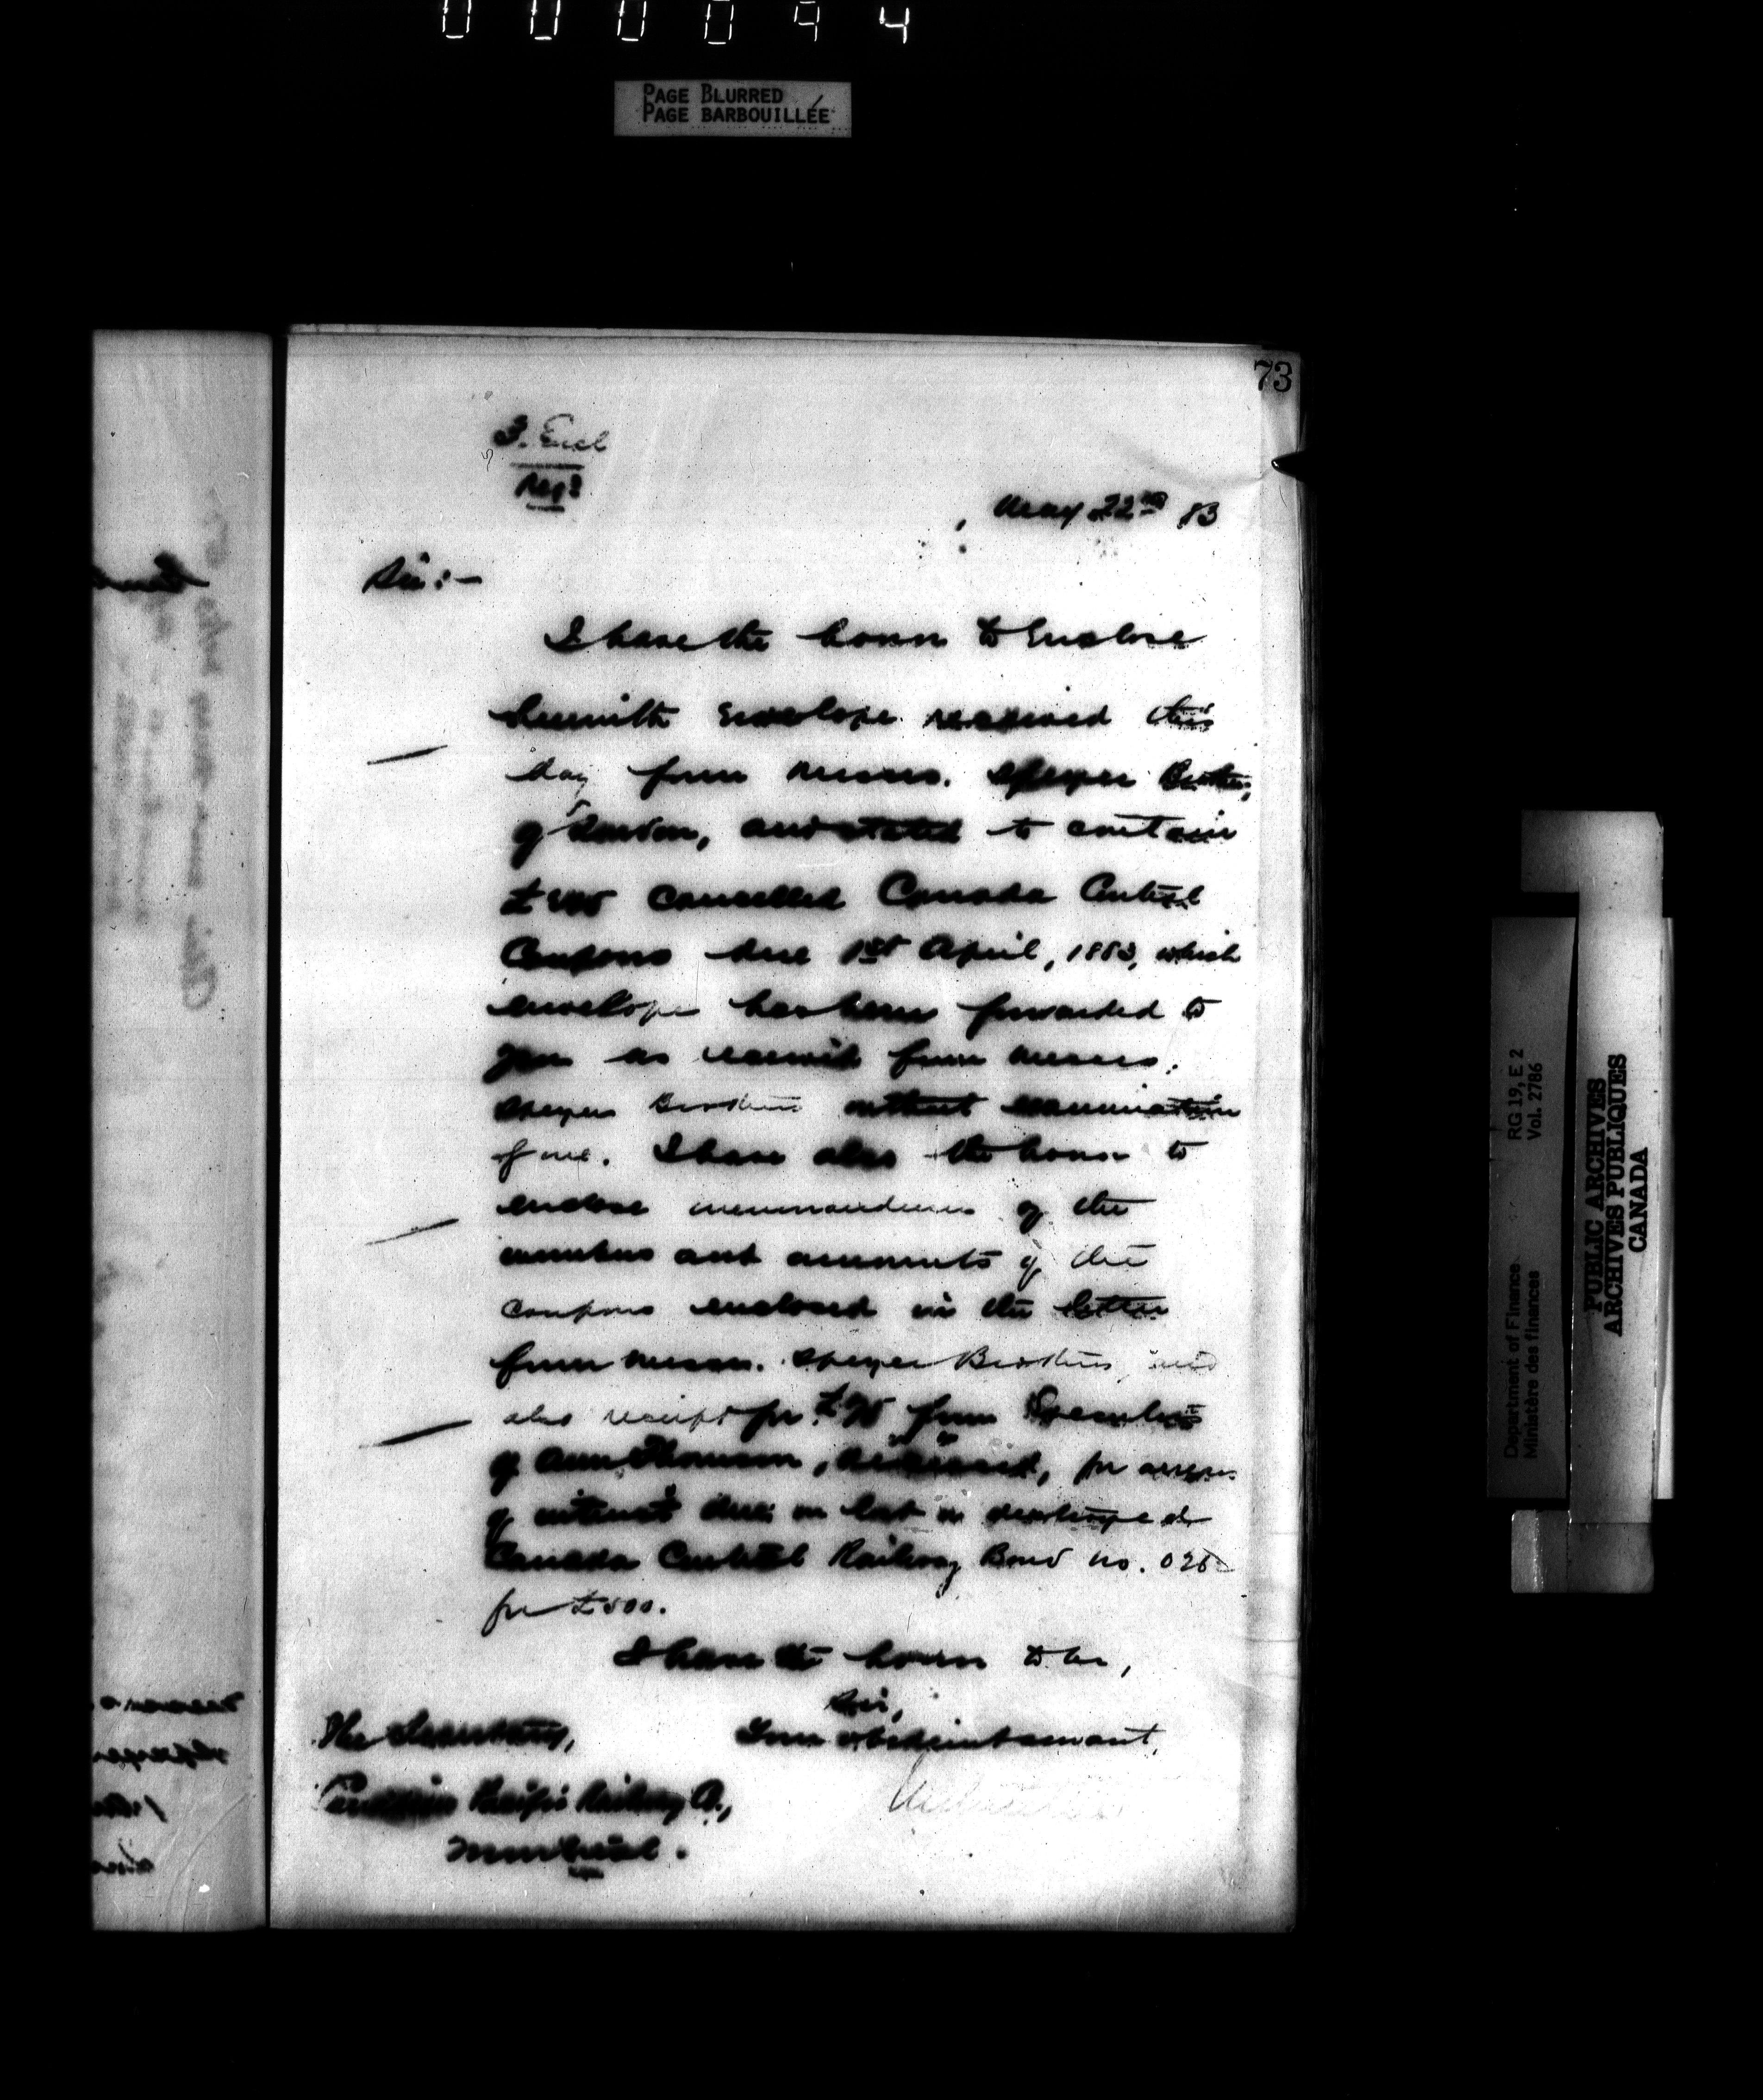 000094
PAGE BLURRED
PAGE BARBOUILLÉE
73
3. Encl
Regd
May 22nd 83
Sir:—
I have the honor to enclose
herewith envelope received this
day from Messrs. Speyer Brothers,
of London, and stated to contain
cancelled Canada Central
Coupons due 1st April, 1883, which
envelope has been forwarded to
you as received from Messrs.
Speyer Brothers without examination
of me. I have also the honor to
enclose memorandum of the
numbers and amounts of the
coupons enclosed in the letter
from Messrs. Speyer Brothers, and
also receipt for from Executors
of Ann Thomson, deceased, for
of interest due on lost or destroyed
Canada Central Railway Bond No.
for £500.
I have the honor to be,
Sir,
Your obedient servant,
The Secretary,
Canadian Pacific Railway Co.,
Montreal.
Department of Finance
Ministère des finances
RG 19, E 2
Vol. 2786
PUBLIC ARCHIVES
ARCHIVES PUBLIQUES
CANADA